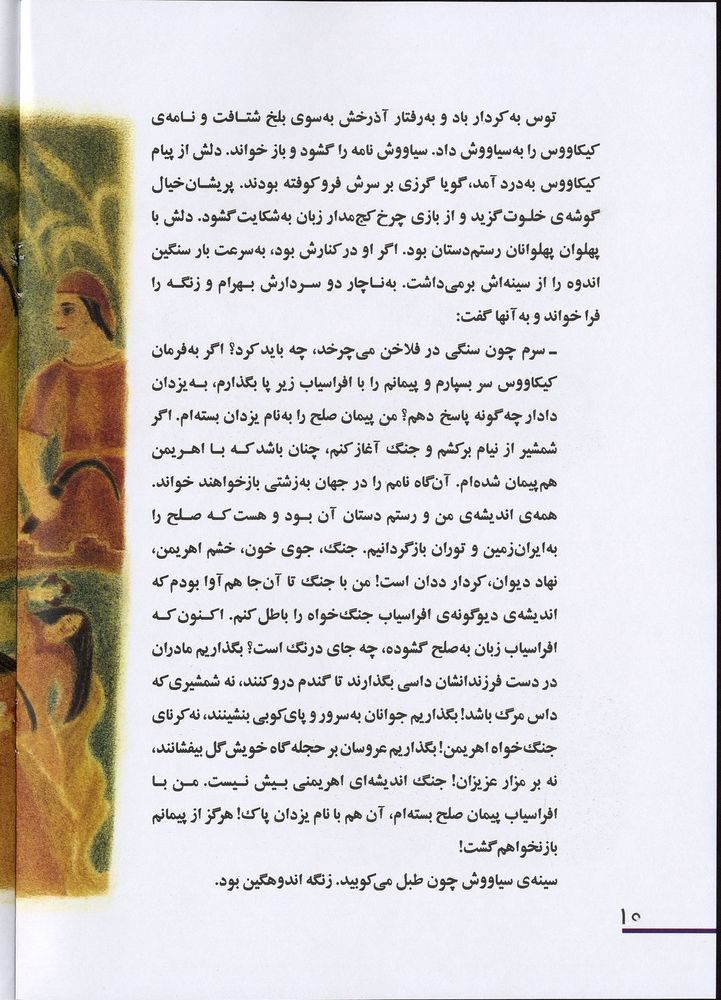 توس به‌کردار باد و به‌رفتار آذرخش به‌سوی بلخ شتافت و نامه‌ی
کیکاووس را به‌سیاووش داد. سیاووش نامه را گشود و باز خواند. دلش از پیام
کیکاووس به‌درد آمد، گویا گرزی بر سرش فرو کوفته بودند. پریشان‌خیال
گوشه‌ی خلوت گزید و از بازی چرخ کج‌مدار زبان به‌شکایت گشود. دلش با
پهلوان پهلوانان رستم‌دستان بود. اگر او در کنارش بود، به‌سرعت بار سنگین
اندوه را از سینه‌اش برمی‌داشت. به‌ناچار دو سردارش بهرام و زنگه را
فرا خواند و به آنها گفت:
ـ سرم چون سنگی در فلاخن می‌چرخد، چه باید کرد؟ اگر به‌فرمان
کیکاووس سر بسپارم و پیمانم را با افراسیاب زیر پا بگذارم، به‌یزدان
دادار چه‌گونه پاسخ دهم؟ من پیمان صلح را به‌نام یزدان بسته‌ام. اگر
شمشیر از نیام برکشم و جنگ آغاز کنم، چنان باشد که با اهریمن
هم‌پیمان شده‌ام. آن‌گاه نامم را در جهان به‌زشتی بازخواهند خواند.
همه‌ی اندیشه‌ی من و رستم دستان آن بود و هست که صلح را
به‌ایران‌زمین و توران بازگردانیم. جنگ، جوی خون، خشم اهریمن،
نهاد دیوان، کردار ددان است! من با جنگ تا آن‌جا هم‌آوا بودم که
اندیشه‌ی دیوگونه‌ی افراسیاب جنگ‌خواه را باطل کنم. اکنون که
افراسیاب زبان به‌صلح گشوده، چه جای درنگ است؟ بگذاریم مادران
در دست فرزندانشان داسی بگذارند تا گندم درو کنند، نه شمشیری که
داس مرگ باشد! بگذاریم جوانان به‌سرور و پای‌کوبی بنشینند، نه کرنای
جنگ‌خواه اهریمن! بگذاریم عروسان بر حجله‌گاه خویش گل بیفشانند،
نه بر مزار عزیزان! جنگ اندیشه‌ای اهریمنی بیش نیست. من با
افراسیاب پیمان صلح بسته‌ام، آن هم با نام یزدان پاک! هرگز از پیمانم
بازنخواهم گشت!
سینه‌ی سیاووش چون طبل می‌کوبید. زنگه اندوهگین بود.
۱۰